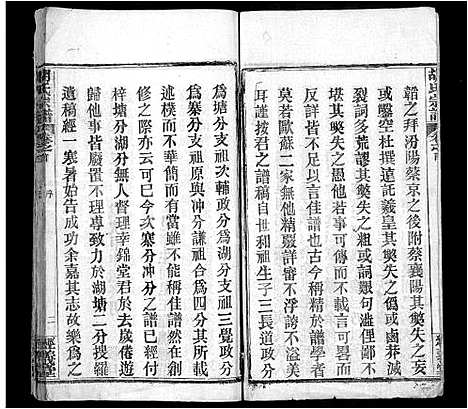 韜之拜汾陽蔡京之後附蔡襄陽其獘失之妄
或鑿空杜撰遠託羲皇其獘失之僞或鹵莽減
裂詞多荒謬其獘失之粗或詩艱久溫俚鄙不
堪堪其獘失之愚他若此類不可枚言可畧而
反詳皆不足言佳譜也古今稱精於譜學者
莫若歐蘇二家無他精嚴詳審不浮誇不溢美
耳謹按君之譜稿自世和祖生子三長道政分
為塘分支祖次輔政分為湖分支祖三覺政分
為寨分支祖原與沖分謙祖合為四分其所載
述樸而不華簡而有法可不謂能慎歟第乙酉
修之際亦云可今次寨分冲分之譜已經付
梓塘分湖分無人督理幸錦堂君於去歲倦遊
歸他事皆廢置不理專致力於湖塘二分搜羅
遺稿經一寒暑始告成功余嘉其志故樂為之
胡氏宗譜
卷之首
序
二
經義堂